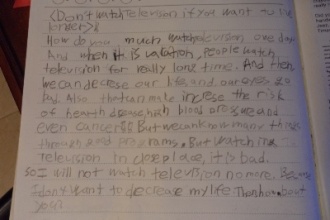 <Don't watch Television if you want to live
longer>
How do you much watch television one day?
And when it is vacation, people watch
television for really long time. And then
we can decrese our life and our eyes go
bad. Also that can make increse the risk
of hearth disease, high blood pressure and
even cancer. But we can know many things
through programs. But watching
television in close place, it is bad.
so I will not watch television no more. Because
I don't want to decrease my life. Then how about
you?